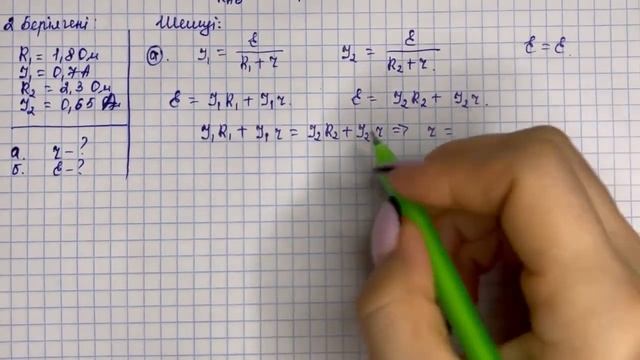 2 Берілгені:
Шешуі:
R₁ = 1,8 Ом
I₁ = 0,7 А
R₂ = 2,3 Ом
I₂ = 0,65
а. r - ?
б. ℰ - ?
а. I₁ = ℰ / (R₁ + r) I₂ = ℰ / (R₂ + r). ℰ = ℰ.
ℰ = I₁R₁ + I₁r. ℰ = I₂R₂ + I₂r.
I₁R₁ + I₁r = I₂R₂ + I₂r => r =